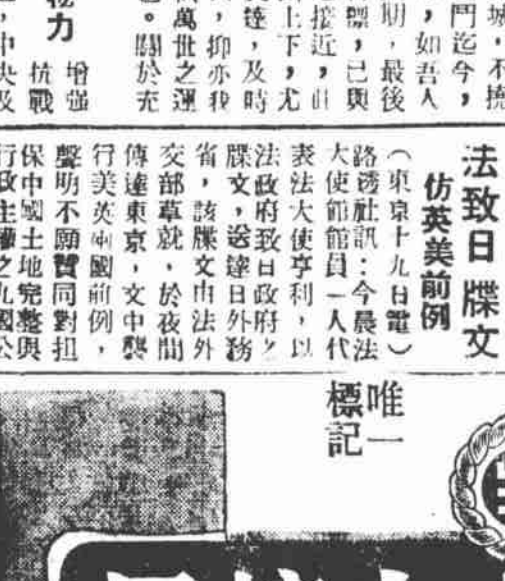 城，不撓
鬥迄今，
，如吾人
期，最後
標，已與
接近，此
上下，尤
達，及時
，抑亦我
萬世之運
。關於充
力
增强
抗戰
，中央及
法致日牒文
仿英美前例
（東京十九日電）
路透社訊：今晨法
大使館館員一人代
表法大使亨利，以
法政府致日政府之
牒文，送達日外務
省，該牒文由法外
交部草就，於夜間
傳達東京，文中襲
行美英兩國前例，
聲明不願贊同對担
保中國土地完整與
行政主權之九國公
唯一
標記